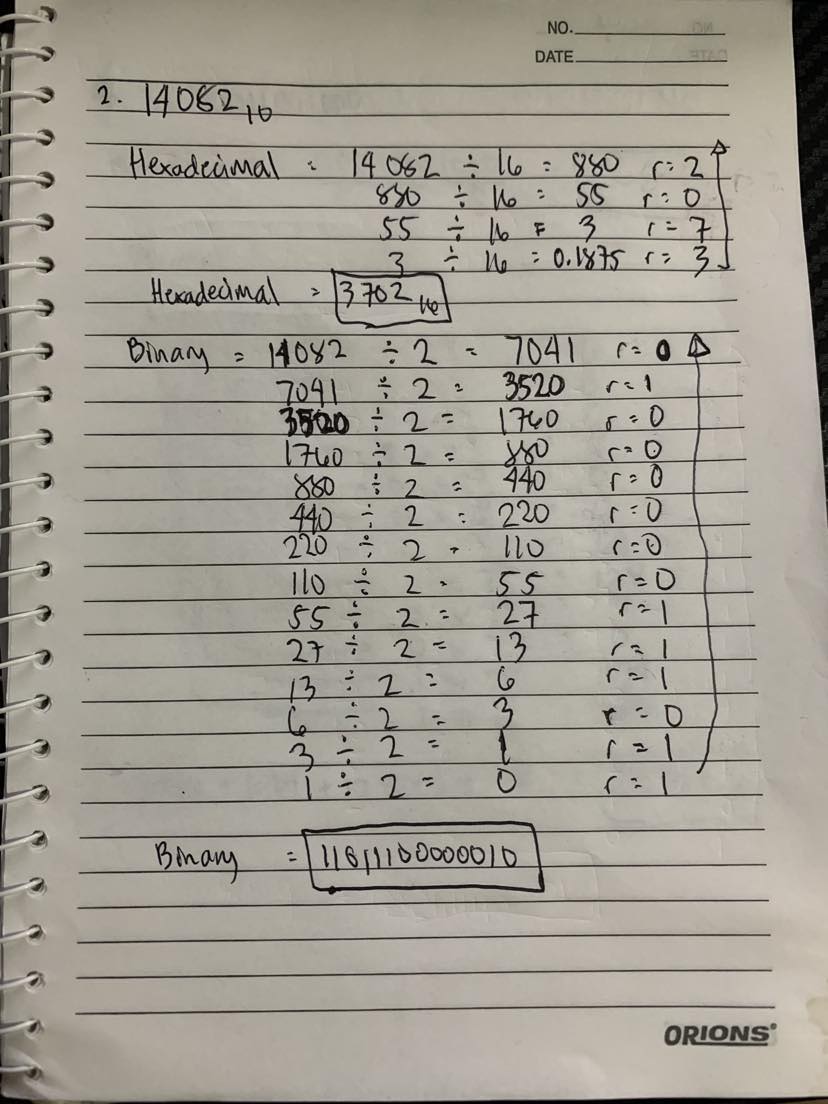 NO.
DATE
2. 14082₁₀
Hexadecimal = 14082 ÷ 16 = 880 r = 2
880 ÷ 16 = 55 r = 0
55 ÷ 16 = 3 r = 7
3 ÷ 16 = 0.1875 r = 3
Hexadecimal = 3702₁₆
Binary = 14082 ÷ 2 = 7041 r = 0
7041 ÷ 2 = 3520 r = 1
3520 ÷ 2 = 1760 r = 0
1760 ÷ 2 = 880 r = 0
880 ÷ 2 = 440 r = 0
440 ÷ 2 = 220 r = 0
220 ÷ 2 = 110 r = 0
110 ÷ 2 = 55 r = 0
55 ÷ 2 = 27 r = 1
27 ÷ 2 = 13 r = 1
13 ÷ 2 = 6 r = 1
6 ÷ 2 = 3 r = 0
3 ÷ 2 = 1 r = 1
1 ÷ 2 = 0 r = 1
Binary = 11011100000010
ORIONS